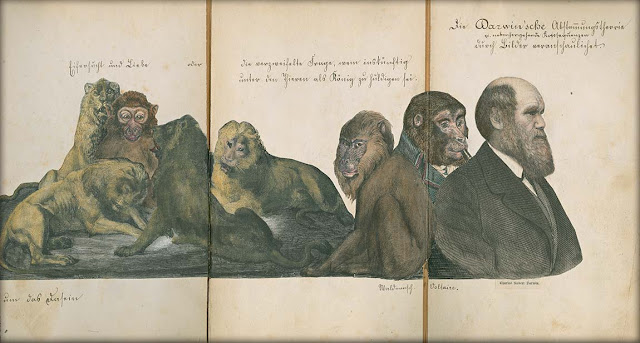 Die Darwin'sche Abstammungstheorie
u. nebenhergehende Konsequenzen
durch Bilder veranschaulichet.
Eifersucht und Liebe oder die verzweifelte Frage, wem inskünftig
unter den Thieren als König zu huldigen sei.
um das Dasein
Waldmensch Voltaire.
Charles Robert Darwin.